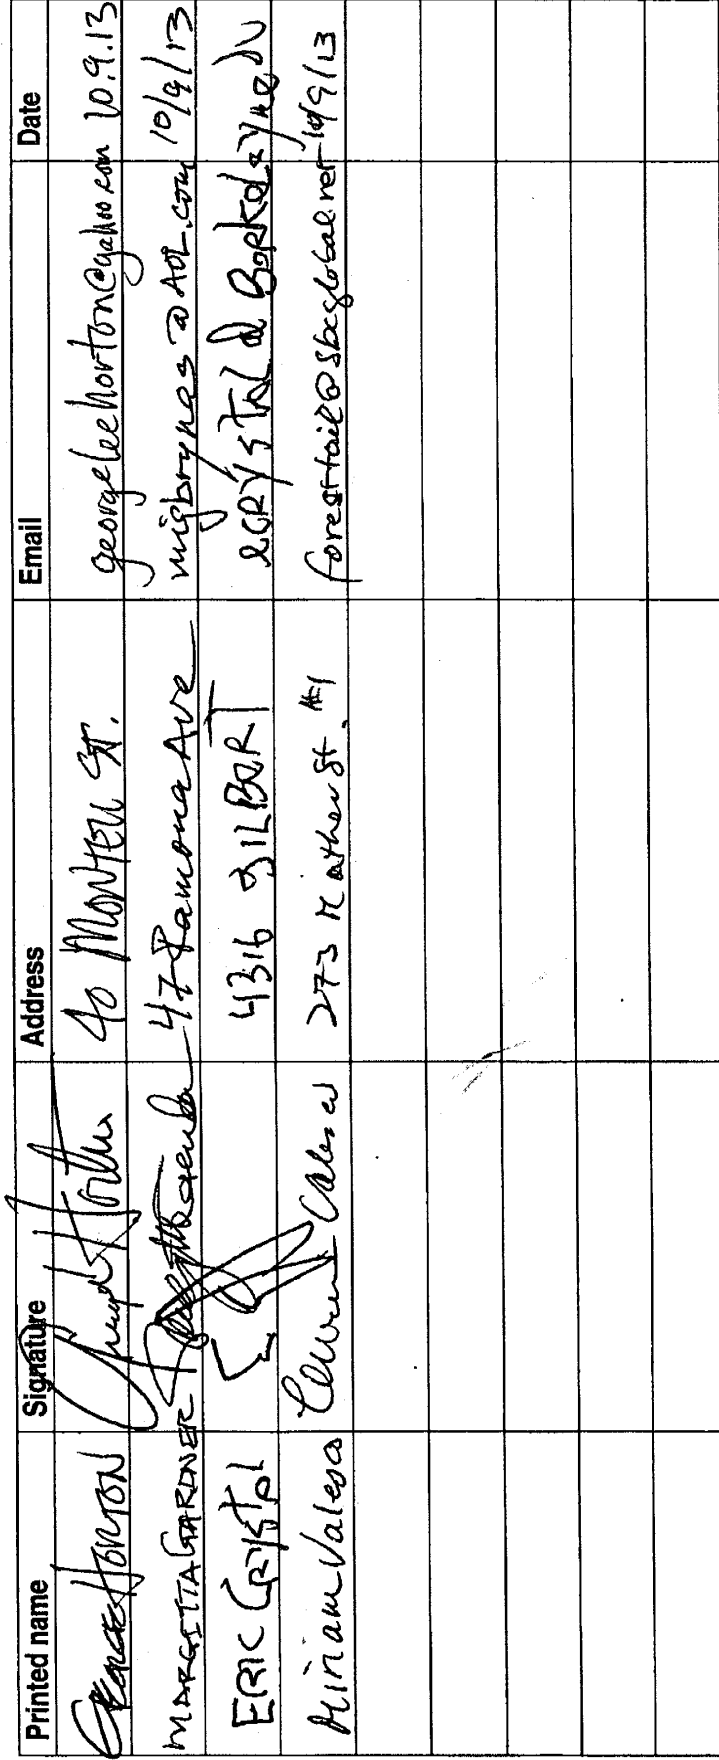 Printed name Signature Address Email Date
George Horton 40 Montell St. georgeleehorton@yahoo.com 10.9.13
MARGETTA GARDNER 47 Ramona Ave @AOL.com 10/9/13
ERIC CRYSTAL 4316 GILBERT ECRYSTAL @ Berkeley.edu
Miriam Valesco 273 Mather St. #1 foresttail@sbcglobal.net 10/9/13